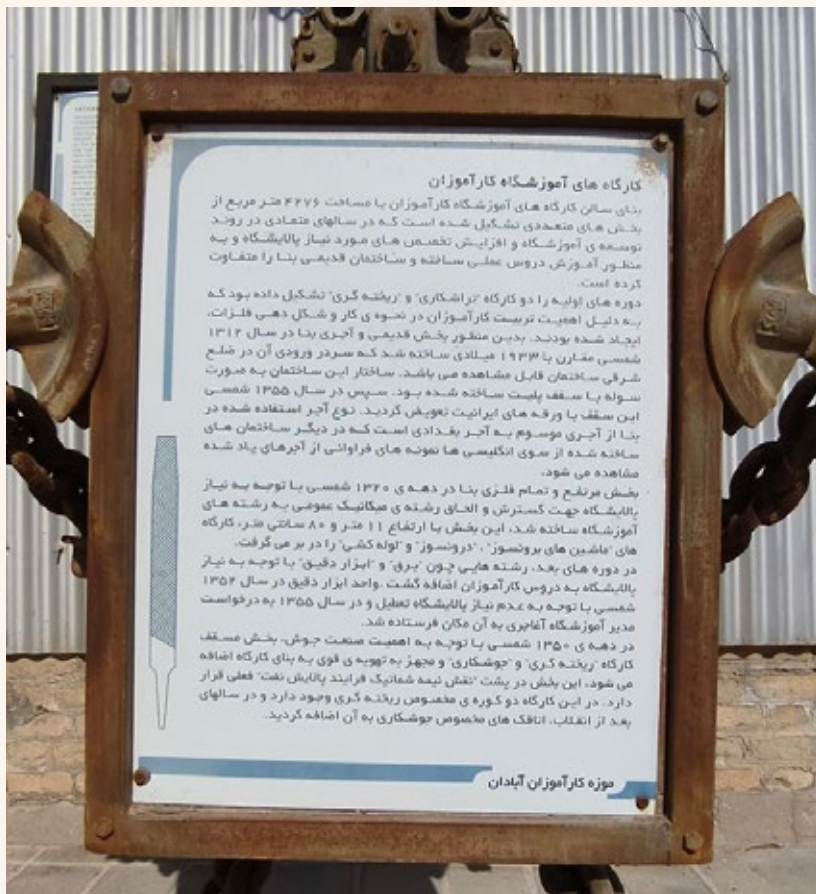 کارگاه های آموزشگاه کارآموزان
بنای سالن کارگاه های آموزشگاه کارآموزان با مساحت ۴۲۷۶ متر مربع از
بخش های متعددی تشکیل شده است که در سالهای متمادی در روند
توسعه ی آموزشگاه و افزایش تخصص های مورد نیاز پالایشگاه و به
منظور آموزش دروس عملی ساخته و ساختمان قدیمی بنا را متفاوت
کرده است.
دوره های اولیه را دو کارگاه "تراشکاری" و "ریخته گری" تشکیل داده بود که
به دلیل اهمیت تربیت کارآموزان در نحوه ی کار و شکل دهی فلزات،
ایجاد شده بودند. بدین منظور بخش قدیمی و آجری بنا در سال ۱۳۱۲
شمسی مقارن با ۱۹۳۳ میلادی ساخته شد که سردر ورودی آن در ضلع
شرقی ساختمان قابل مشاهده می باشد. ساختار این ساختمان به صورت
سوله با سقف پلیت ساخته شده بود. سپس در سال ۱۳۵۵ شمسی
این سقف با ورقه های ایرانیت تعویض گردید. نوع آجر استفاده شده در
بنا از آجری موسوم به آجر بغدادی است که در دیگر ساختمان های
ساخته شده از سوی انگلیسی ها نمونه های فراوانی از آجرهای یاد شده
مشاهده می شود.
بخش مرتفع و تمام فلزی بنا در دهه ی ۱۳۲۰ شمسی با توجه به نیاز
پالایشگاه جهت گسترش و الحاق رشته ی میکانیک عمومی به رشته های
آموزشگاه ساخته شد، این بخش با ارتفاع ۱۱ متر و ۸۰ سانتی متر، کارگاه
های "ماشین های برونسوز" ، "درونسوز" و "لوله کشی" را در بر می گرفت.
در دوره های بعد، رشته هایی چون "برق" و "ابزار دقیق" با توجه به نیاز
پالایشگاه به دروس کارآموزان اضافه گشت .واحد ابزار دقیق در سال ۱۳۵۲
شمسی با توجه به عدم نیاز پالایشگاه تعطیل و در سال ۱۳۵۵ به درخواست
مدیر آموزشگاه آغاجری به آن مکان فرستاده شد.
در دهه ی ۱۳۵۰ شمسی با توجه به اهمیت صنعت جوش، بخش مسقف
کارگاه "ریخته گری" و "جوشکاری" و مجهز به تهویه ی قوی به بنای کارگاه اضافه
می شود، این بخش در پشت "نقش نیمه شماتیک فرایند پالایش نفت" فعلی قرار
دارد. در این کارگاه دو کوره ی مخصوص ریخته گری وجود دارد و در سالهای
بعد از انقلاب، اتاقک های مخصوص جوشکاری به آن اضافه گردید.
موزه کارآموزان آبادان